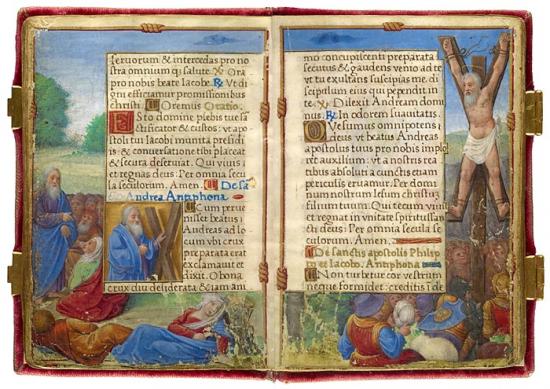 seruorum & intercedas pro no
stra omnium qȝ salute. ℣ Ora
pro nobis beate Iacobe. ℟ Vt di
gni efficiamur promissionibus
christi. Oremus Oratio.
ESto domine plebis tuæ sā
ctificator & custos: vt apo
stoli tui Iacobi munita presidi
is: & conuersatione tibi placeat
& secura deseruiat. Qui viuis
et regnas deus: Per omnia secu
la seculorum. Amen. De sā
Andrea Antiphona
CUm perue
nisset beatus
Andreas ad lo
cum vbi crux
preparata erat
exclamauit et
dixit. O bona
crux diu desiderata & iam ani
mo concupiscenti preparata
securus & gaudens venio ad te
vt tu exultans suscipias me, di
scipulum eius qui pependit in
te. ℣ Dilexit Andream domi
nus. ℟ In odorem suauitatis.
OVesumus omnipotens
deus vt beatus Andreas
apostolus tuus pro nobis implo
ret auxilium: vt a nostris rea
tibus absoluti a cunctis etiam
periculis eruamur. Per domi
num nostrum Iesum christum
filium tuum. Qui tecum viuit
et regnat in vnitate spiritussan
sti deus: Per omnia secula se
culorum. Amen.
De sanctis apostolis Philip
po et Iacobo. Antiphona
NOn turbetur cor vestrum
neque formidet: creditis ī de